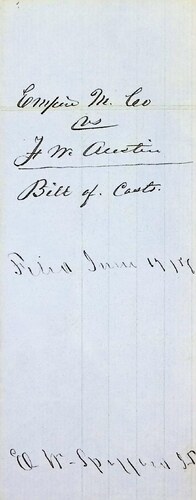 Empire M. Co
vs
F W Austin
Bill of Costs.
Filed June 17 187
E W Spofford J.P